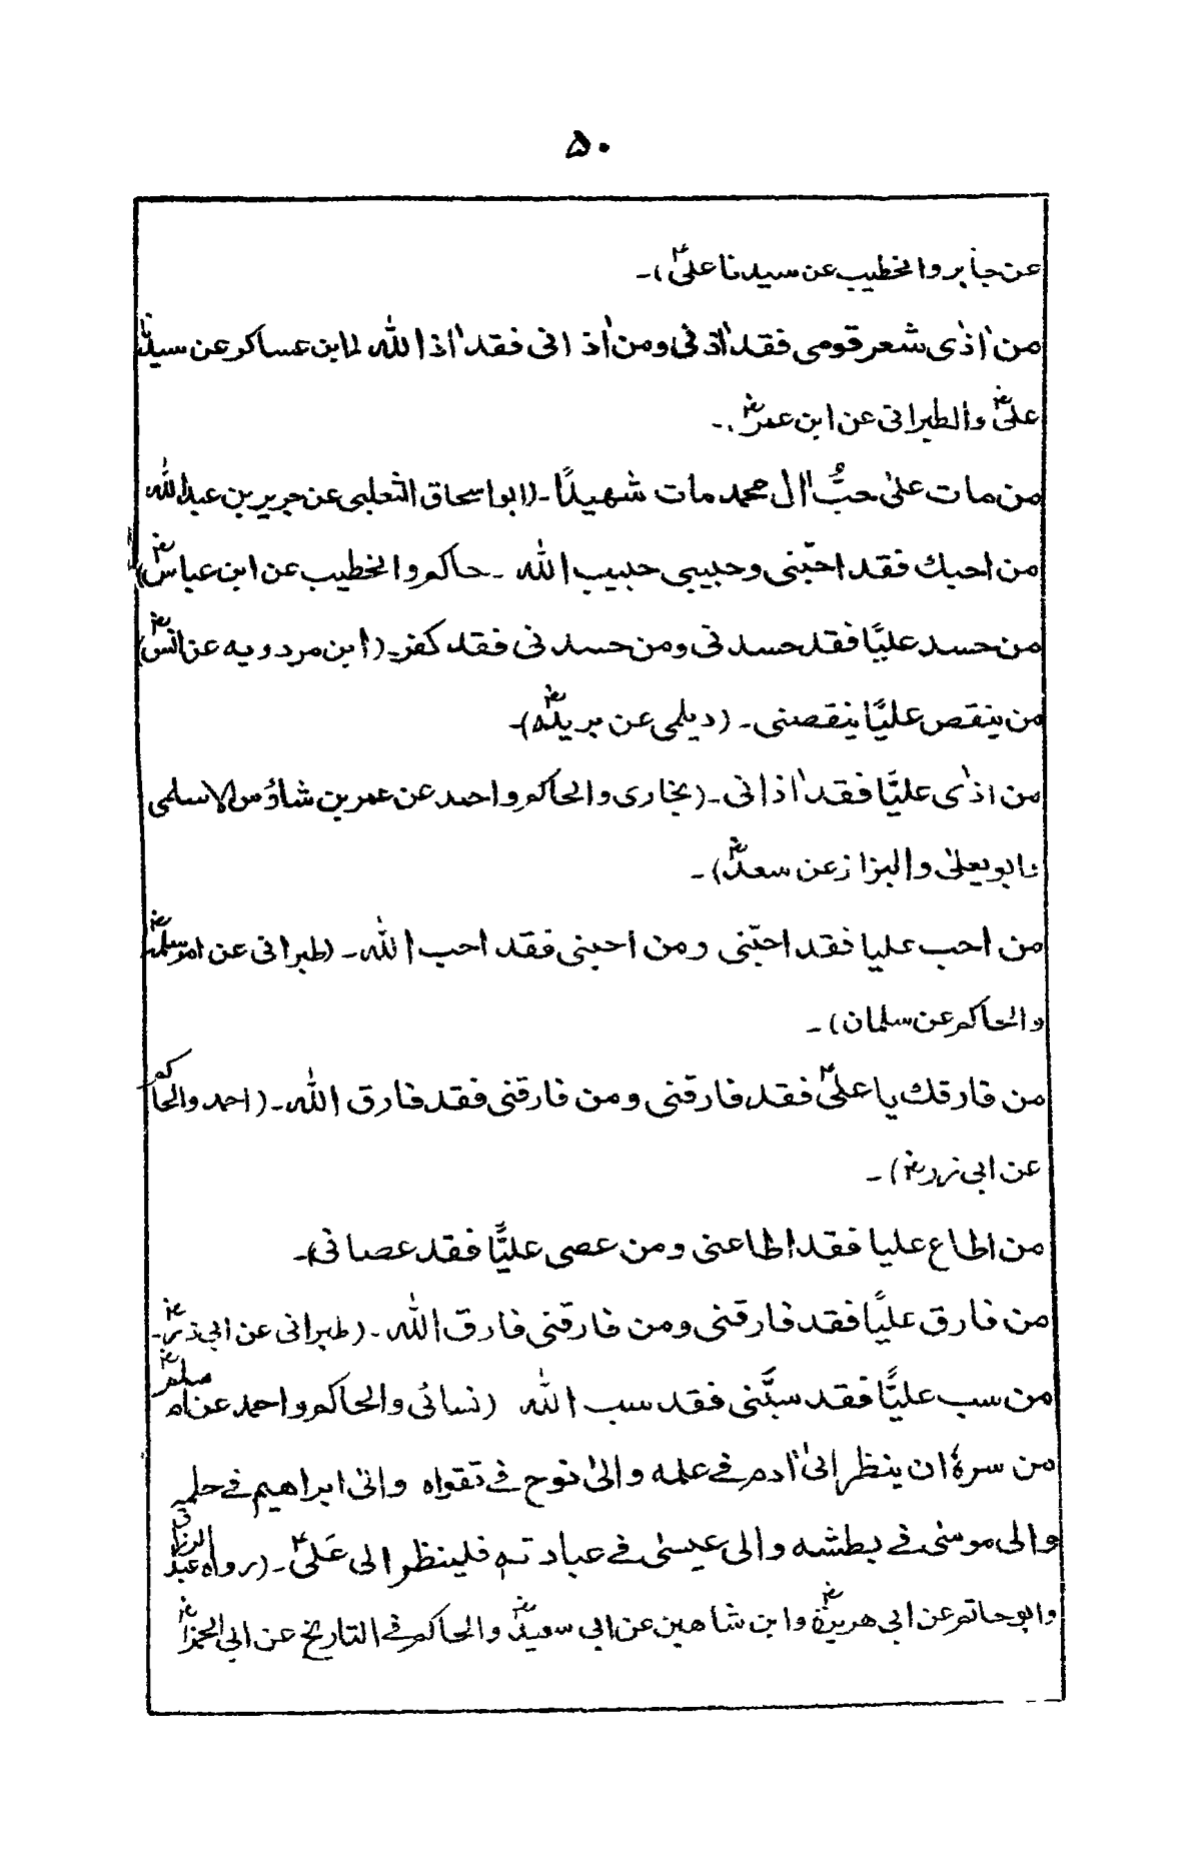 ۵۰
عن جابر والخطیب عن سیدنا علیؑ)۔
من اٰذٰی شعر قومی فقد اٰذنی ومن اٰذانی فقد اٰذا اللہ لابن عساکر عن سیدنا
علیؓ والطبرانی عن ابن عمرؓ۔
من مات علیٰ حبُّ اٰل محمد مات شھیدًا۔(ابو اسحاق الثعلبی عن جریر بن عبداللہ
من احبك فقد احبّنی وحبیبی حبیب اللہ ۔حاکم والخطیب عن ابن عباسؓ)
من حسد علیًّا فقد حسدنی ومن حسدنی فقد کفر۔(ابن مردویہ عن انسؓ)
من ینقص علیًّا ینقصنی۔ (دیلمی عن بریدہؓ)۔
من اٰذٰی علیًّا فقد اٰذانی۔(بخاری والحاکم واحمد عن عمر بن شاؤس الاسلمی
وابویعلیٰ والبزاز عن سعدؓ)۔
من احب علیا فقد احبّنی ومن احبنی فقد احب اللہ۔ (طبرانی عن ام سلمہؓ
والحاکم عن سلمان)۔
من فارقك یا علیؑ فقد فارقنی ومن فارقنی فقد فارق اللہ۔(احمد والحاکم
عن ابی زرؓ)۔
من اطاع علیا فقد اطاعنی ومن عصی علیًّا فقد عصانی)۔
من فارق علیًّا فقد فارقنی ومن فارقنی فارق اللہ۔(طبرانی عن ابی ذرؓ۔
من سب علیًّا فقد سبَّنی فقد سب اللہ (نسائی والحاکم واحمد عن ام سلمہؓ
من سرہٗ ان ینظر الیٰ اٰدم فے علمہ والیٰ نوح فے تقواہ والیٰ ابراھیم فے حلمہ
والی موسٰی فے بطشہ والی عیسیٰ فے عبادتہ فلینظر الی عَلیؑ۔(رواہ عبدالرزاق
وابو حاتم عن ابی ھریرۃؓ وابن شاھین عن ابی سعیدؓ والحاکم فے التاریخ عن ابی الحمراؓ